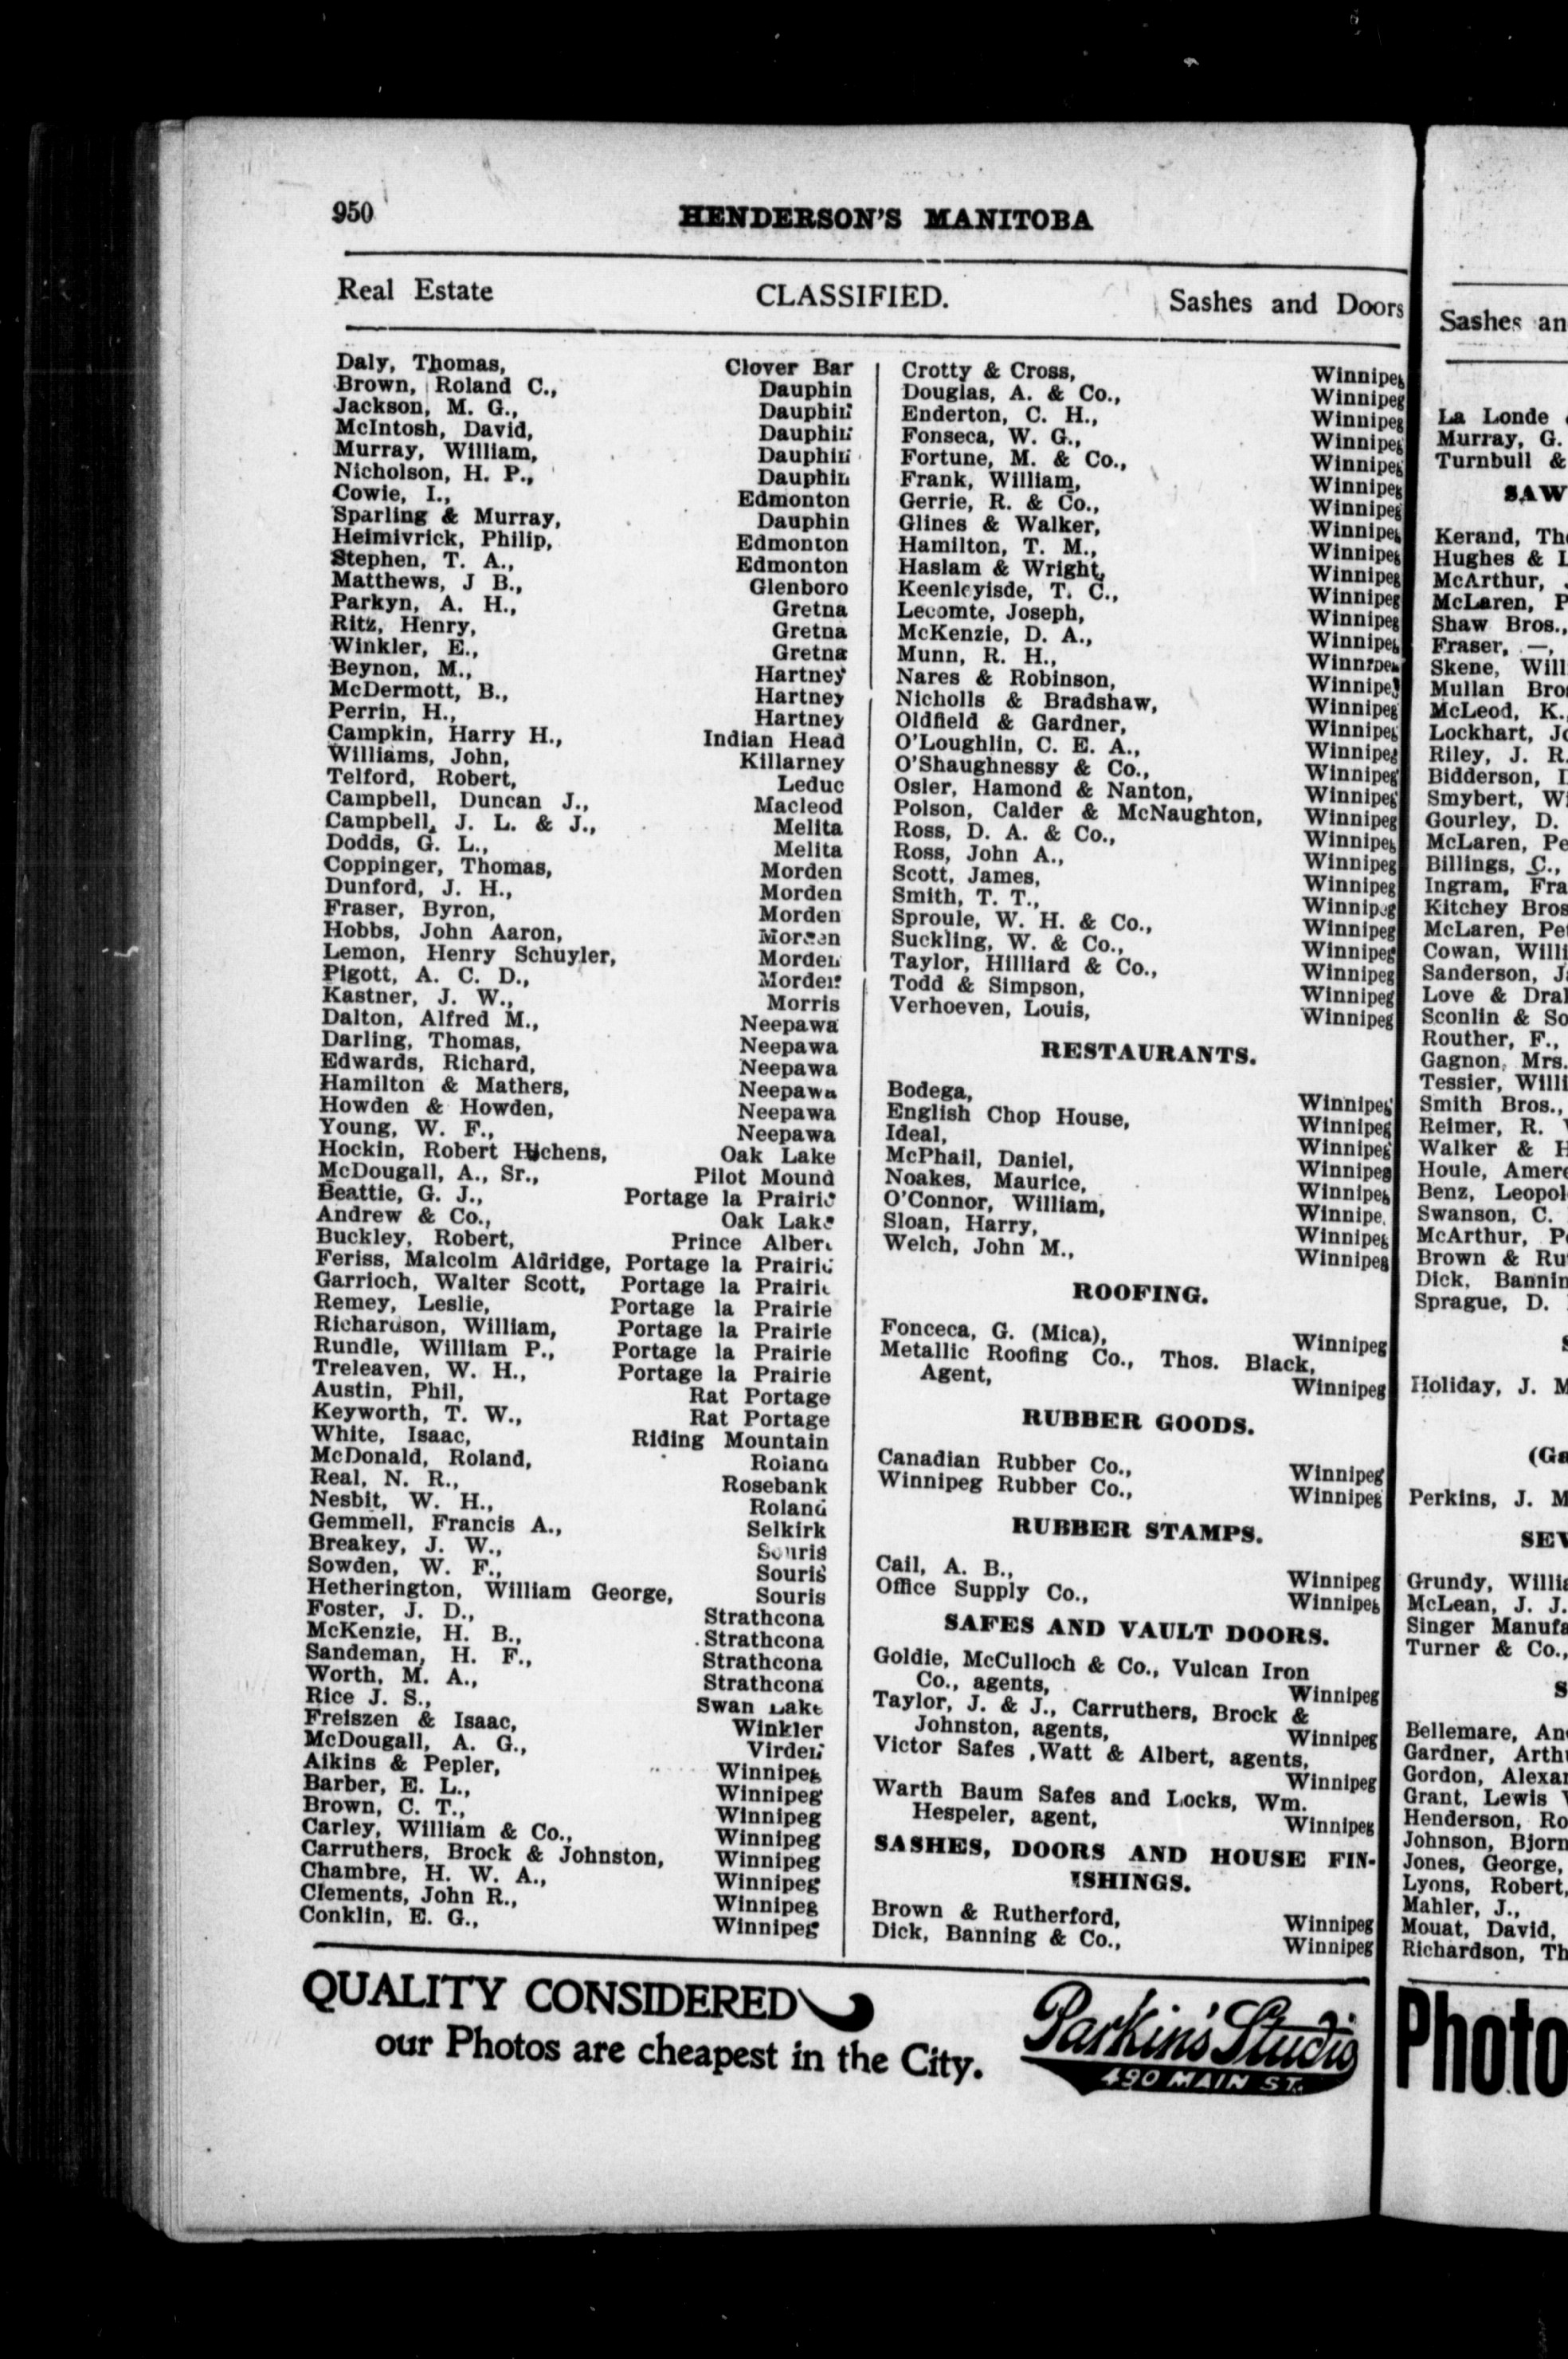 950
HENDERSON'S MANITOBA
Real Estate
CLASSIFIED.
Sashes and Doors
Daly, Thomas, Clover Bar
Brown, Roland C., Dauphin
Jackson, M. G., Dauphin
McIntosh, David, Dauphin
Murray, William, Dauphin
Nicholson, H. P., Dauphin
Cowie, I., Edmonton
Sparling & Murray, Dauphin
Heimivrick, Philip, Edmonton
Stephen, T. A., Edmonton
Matthews, J B., Glenboro
Parkyn, A. H., Gretna
Ritz, Henry, Gretna
Winkler, E., Gretna
Beynon, M., Hartney
McDermott, B., Hartney
Perrin, H., Hartney
Campkin, Harry H., Indian Head
Williams, John, Killarney
Telford, Robert, Leduc
Campbell, Duncan J., Macleod
Campbell, J. L. & J., Melita
Dodds, G. L., Melita
Coppinger, Thomas, Morden
Dunford, J. H., Morden
Fraser, Byron, Morden
Hobbs, John Aaron, Morden
Lemon, Henry Schuyler, Morden
Pigott, A. C. D., Morden
Kastner, J. W., Morris
Dalton, Alfred M., Neepawa
Darling, Thomas, Neepawa
Edwards, Richard, Neepawa
Hamilton & Mathers, Neepawa
Howden & Howden, Neepawa
Young, W. F., Neepawa
Hockin, Robert Hichens, Oak Lake
McDougall, A., Sr., Pilot Mound
Beattie, G. J., Portage la Prairie
Andrew & Co., Oak Lake
Buckley, Robert, Prince Albert
Feriss, Malcolm Aldridge, Portage la Prairie
Garrioch, Walter Scott, Portage la Prairie
Remey, Leslie, Portage la Prairie
Richardson, William, Portage la Prairie
Rundle, William P., Portage la Prairie
Treleaven, W. H., Portage la Prairie
Austin, Phil, Rat Portage
Keyworth, T. W., Rat Portage
White, Isaac, Riding Mountain
McDonald, Roland, Roland
Real, N. R., Rosebank
Nesbit, W. H., Roland
Gemmell, Francis A., Selkirk
Breakey, J. W., Souris
Sowden, W. F., Souris
Hetherington, William George, Souris
Foster, J. D., Strathcona
McKenzie, H. B., Strathcona
Sandeman, H. F., Strathcona
Worth, M. A., Strathcona
Rice J. S., Swan Lake
Freiszen & Isaac, Winkler
McDougall, A. G., Virden
Aikins & Pepler, Winnipeg
Barber, E. L., Winnipeg
Brown, C. T., Winnipeg
Carley, William & Co., Winnipeg
Carruthers, Brock & Johnston, Winnipeg
Chambre, H. W. A., Winnipeg
Clements, John R., Winnipeg
Conklin, E. G., Winnipeg
Crotty & Cross, Winnipeg
Douglas, A. & Co., Winnipeg
Enderton, C. H., Winnipeg
Fonseca, W. G., Winnipeg
Fortune, M. & Co., Winnipeg
Frank, William, Winnipeg
Gerrie, R. & Co., Winnipeg
Glines & Walker, Winnipeg
Hamilton, T. M., Winnipeg
Haslam & Wright, Winnipeg
Keenleyisde, T. C., Winnipeg
Lecomte, Joseph, Winnipeg
McKenzie, D. A., Winnipeg
Munn, R. H., Winnipeg
Nares & Robinson, Winnipeg
Nicholls & Bradshaw, Winnipeg
Oldfield & Gardner, Winnipeg
O'Loughlin, C. E. A., Winnipeg
O'Shaughnessy & Co., Winnipeg
Osler, Hamond & Nanton, Winnipeg
Polson, Calder & McNaughton, Winnipeg
Ross, D. A. & Co., Winnipeg
Ross, John A., Winnipeg
Scott, James, Winnipeg
Smith, T. T., Winnipeg
Sproule, W. H. & Co., Winnipeg
Suckling, W. & Co., Winnipeg
Taylor, Hilliard & Co., Winnipeg
Todd & Simpson, Winnipeg
Verhoeven, Louis, Winnipeg
RESTAURANTS.
Bodega, Winnipeg
English Chop House, Winnipeg
Ideal, Winnipeg
McPhail, Daniel, Winnipeg
Noakes, Maurice, Winnipeg
O'Connor, William, Winnipe
Sloan, Harry, Winnipeg
Welch, John M., Winnipeg
ROOFING.
Fonceca, G. (Mica), Winnipeg
Metallic Roofing Co., Thos. Black,
Agent, Winnipeg
RUBBER GOODS.
Canadian Rubber Co., Winnipeg
Winnipeg Rubber Co., Winnipeg
RUBBER STAMPS.
Cail, A. B., Winnipeg
Office Supply Co., Winnipeg
SAFES AND VAULT DOORS.
Goldie, McCulloch & Co., Vulcan Iron
Co., agents, Winnipeg
Taylor, J. & J., Carruthers, Brock &
Johnston, agents, Winnipeg
Victor Safes ,Watt & Albert, agents,
Winnipeg
Warth Baum Safes and Locks, Wm.
Hespeler, agent, Winnipeg
SASHES, DOORS AND HOUSE FIN-
ISHINGS.
Brown & Rutherford, Winnipeg
Dick, Banning & Co., Winnipeg
QUALITY CONSIDERED
our Photos are cheapest in the City.
Parkin's Studio
490 MAIN ST.
Sashes an
La Londe
Murray, G.
Turnbull &
SAW
Kerand, Th
Hughes & L
McArthur,
McLaren, P
Shaw Bros.,
Fraser, —,
Skene, Will
Mullan Bro
McLeod, K.
Lockhart, Jo
Riley, J. R.
Bidderson,
Smybert, W
Gourley, D.
McLaren, Pe
Billings, C.,
Ingram, Fra
Kitchey Bros
McLaren, Pe
Cowan, Willi
Sanderson, J
Love & Dra
Sconlin & So
Routher, F.,
Gagnon, Mrs.
Tessier, Willi
Smith Bros.,
Reimer, R.
Walker & H
Houle, Amer
Benz, Leopol
Swanson, C.
McArthur, P
Brown & Ru
Dick, Bannin
Sprague, D.
S
Holiday, J. M
(Ga
Perkins, J. M
SEW
Grundy, Willi
McLean, J. J.
Singer Manufa
Turner & Co.,
S
Bellemare, An
Gardner, Arth
Gordon, Alexa
Grant, Lewis
Henderson, Ro
Johnson, Bjorn
Jones, George,
Lyons, Robert,
Mahler, J.,
Mouat, David,
Richardson, Th
Photo